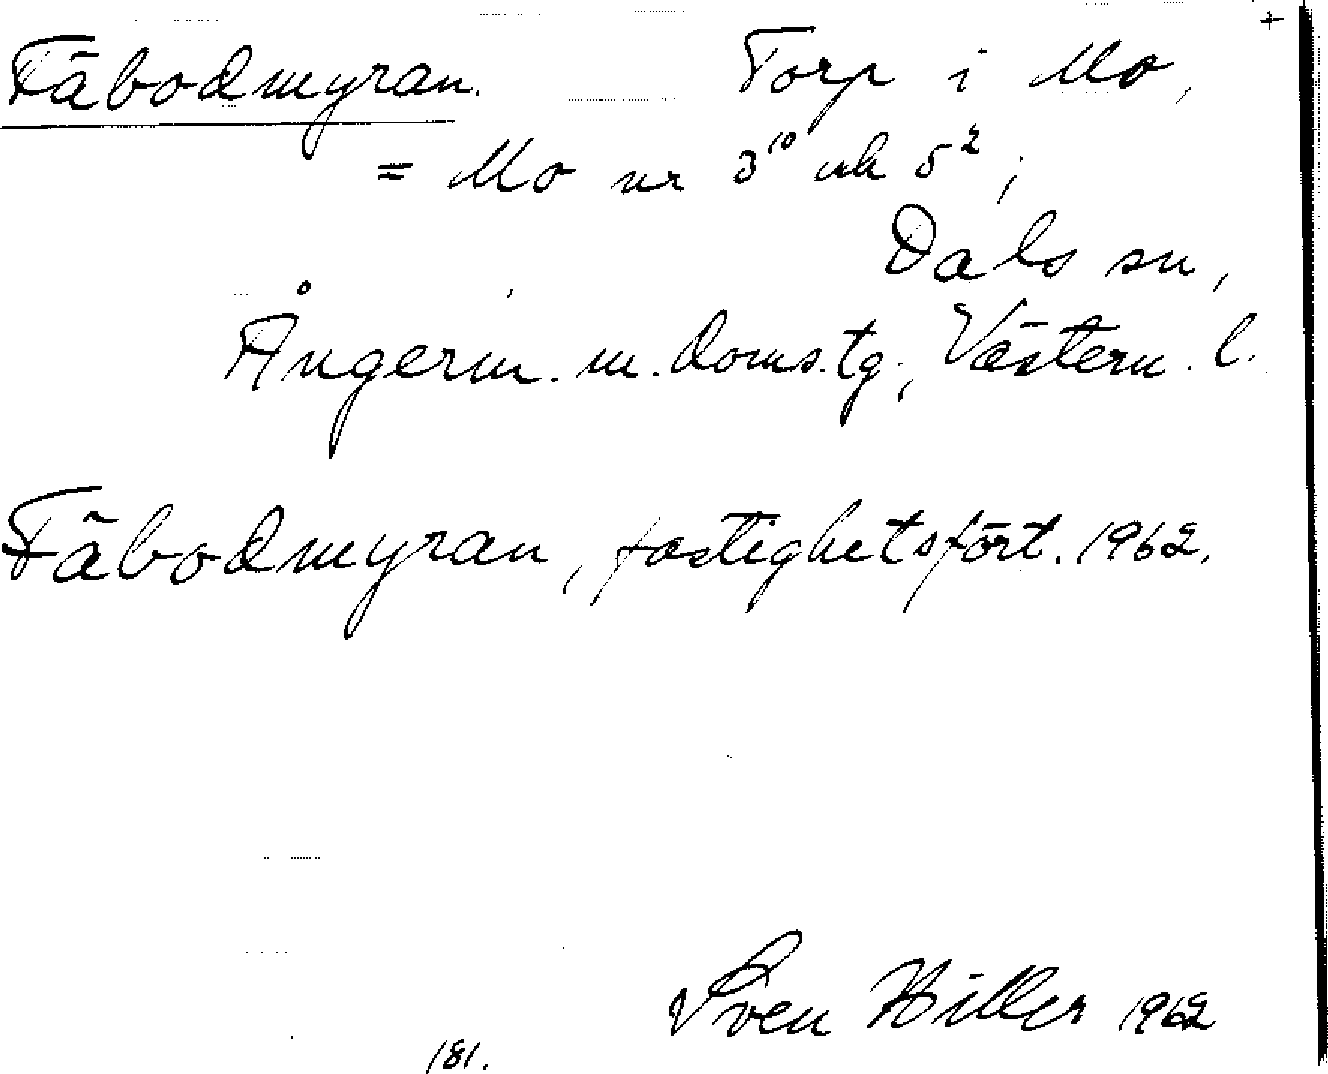 +
Fäbodmyran. Torp i Mo,
= Mo nr 3¹⁰ och 5²;
Dals sn,
Ångerm. m. doms.tg., Västern. l.
Fäbodmyran, fastighetsfört. 1962.
Sven Hiller 1962
181.